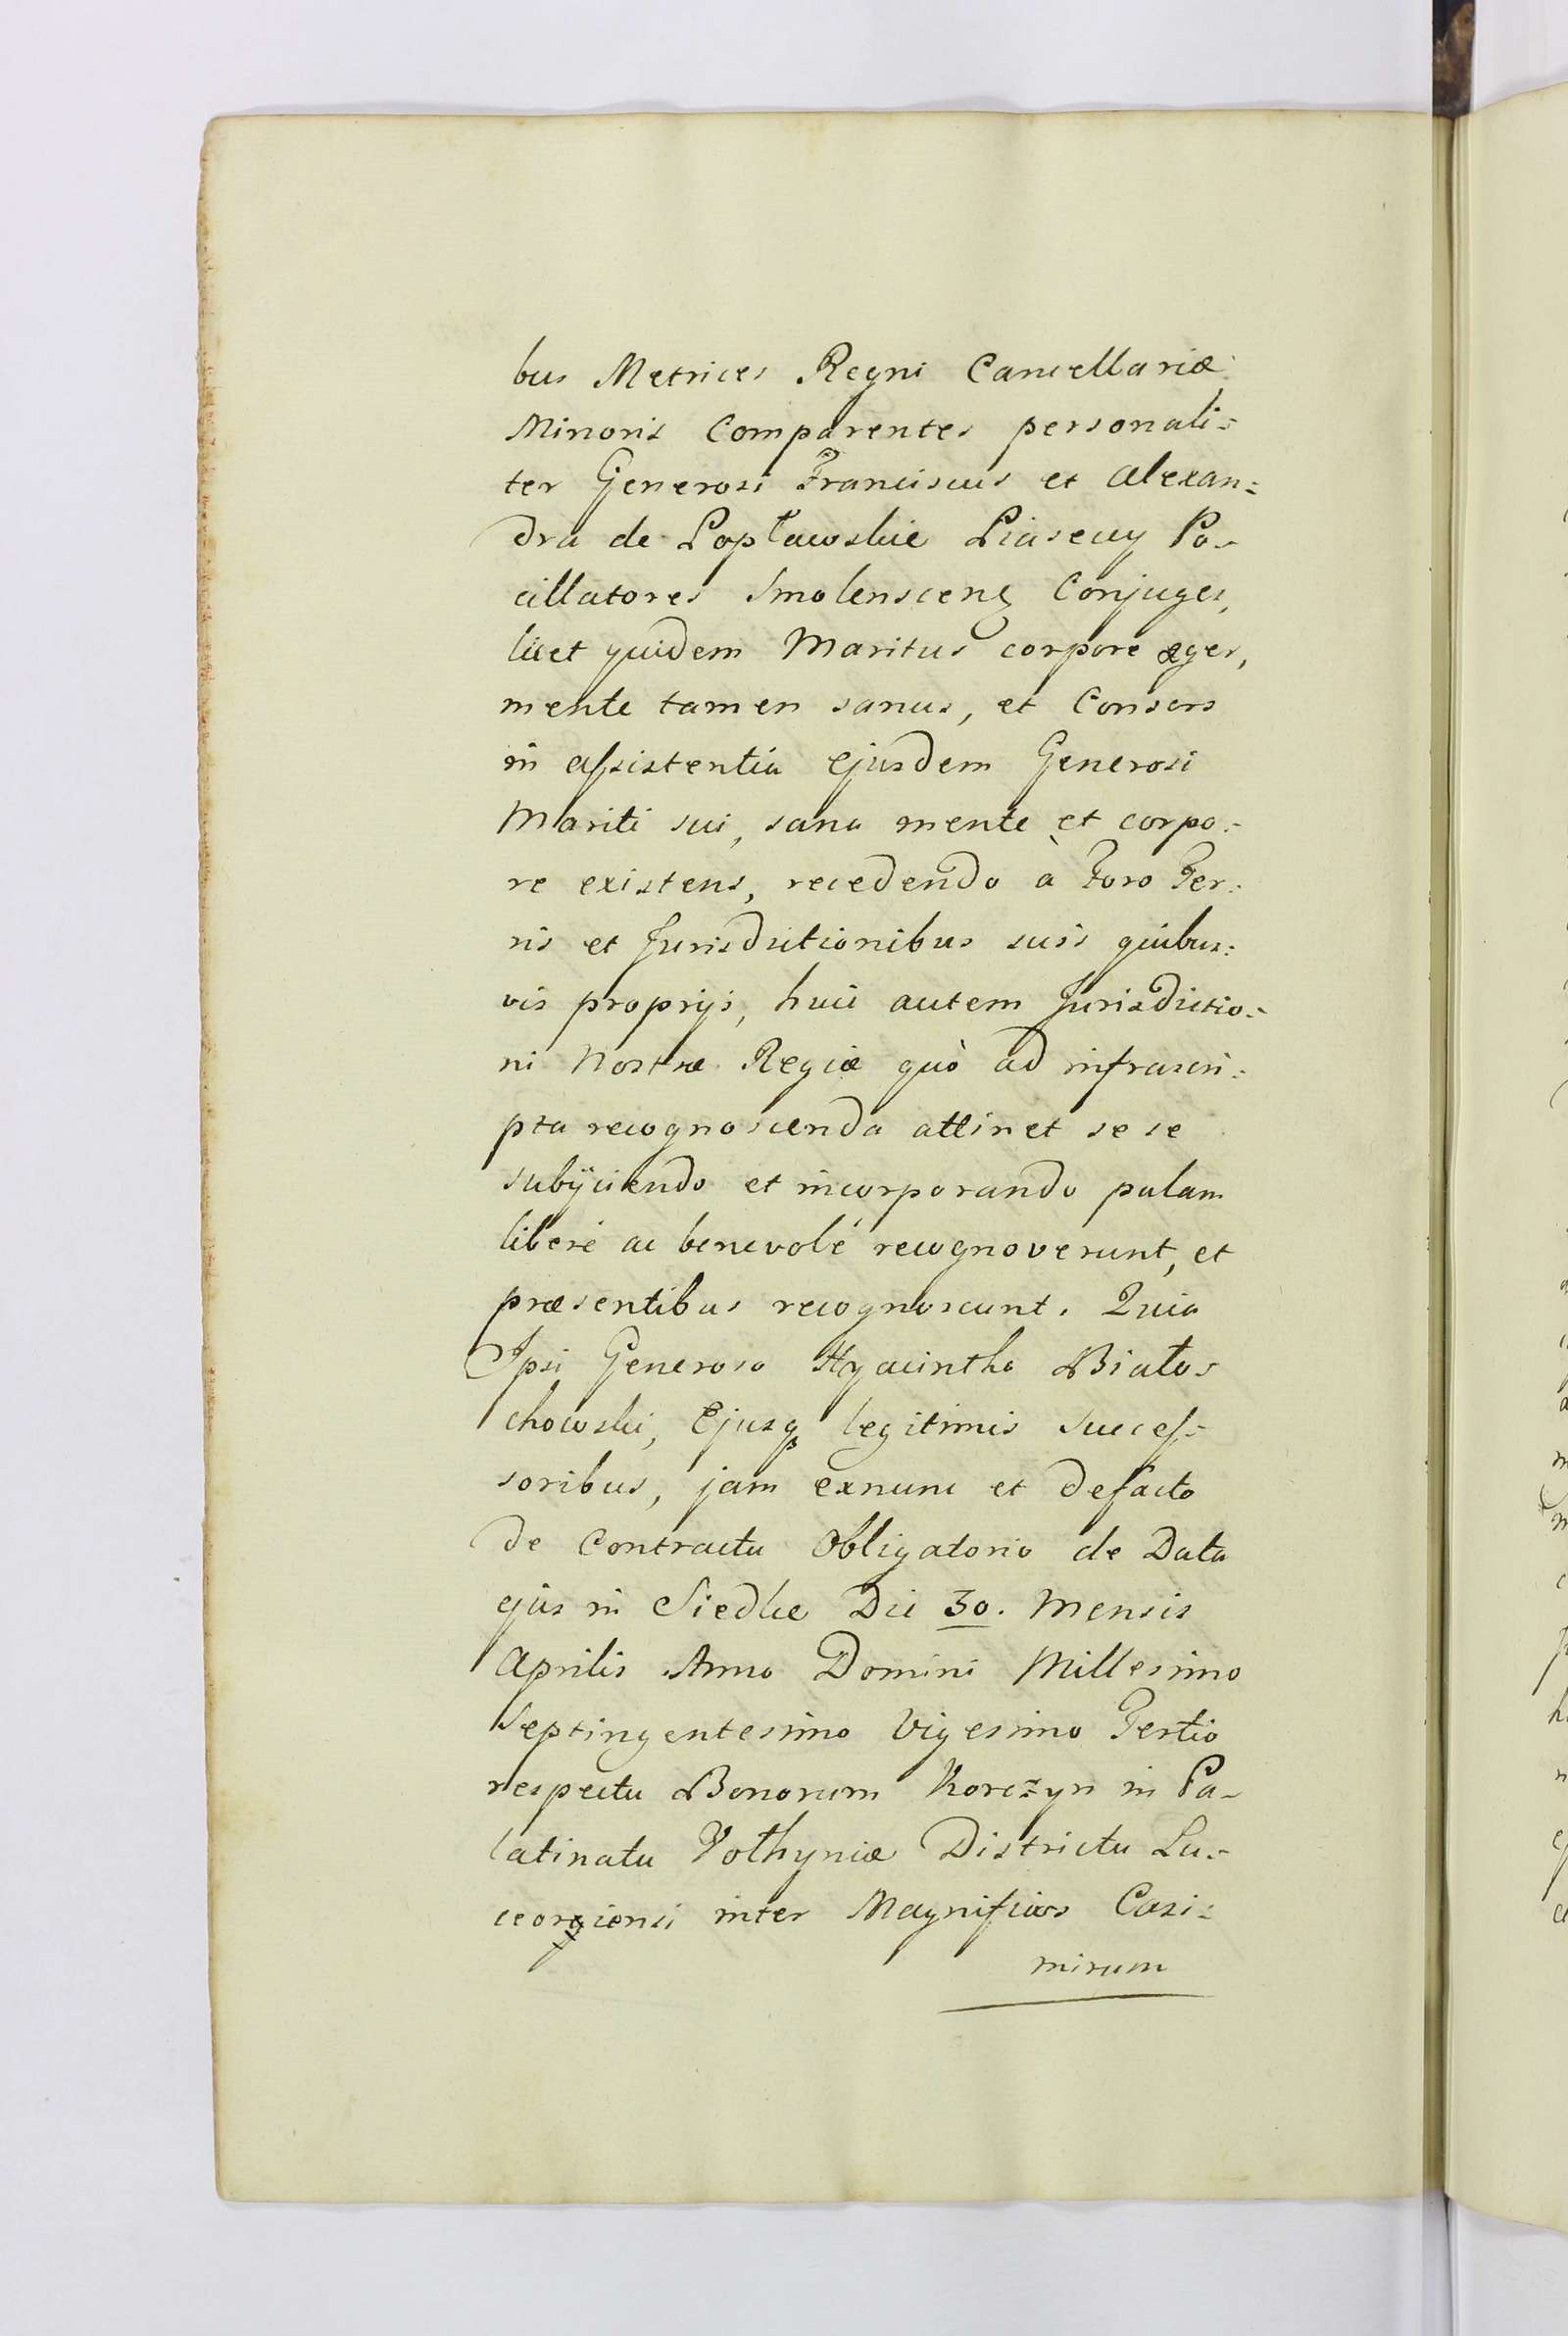 bus Metrices Regni Cancellariæ
Minoris Comparentes personali=
ter Generosi Franciscus et Alexan=
dra de Popławskie Piaseccy Po-
cillatores Smolenscenẽ Conjuges,
licet quidem Maritus corpore æger,
mente tamen sanus, et Consors
in assistentia ejusdem Generosi
Mariti sui, sana mente et corpo=
re existens, recedendo à Foro Ter=
ris et Jurisdictionibus suis quibus=
vis proprijs, huic autem Jurisdictio=
ni Nostræ Regiæ quò ad infrascri=
pta recognoscenda attinet se se
subÿciendo et incorporando palam
liberè ac benevolè recognoverunt, et
præsentibus recognoscunt. Quia
Ipsi Generoso Hyacintho Biało=
chowski, Ejusq legitimis succes=
soribus, jam exnunc et defacto
de Contractu Obligatorio de Data
ejus in Siedlce Die 30. Mensis
Aprilis Anno Domini Millesimo
Septingentesimo Vigesimo Tertio
respectu Bonorum Korczyn in Pa-
latinatu Volhyniæ Districtu Lu=
ceoriensi inter Magnificos Casi=
mirum